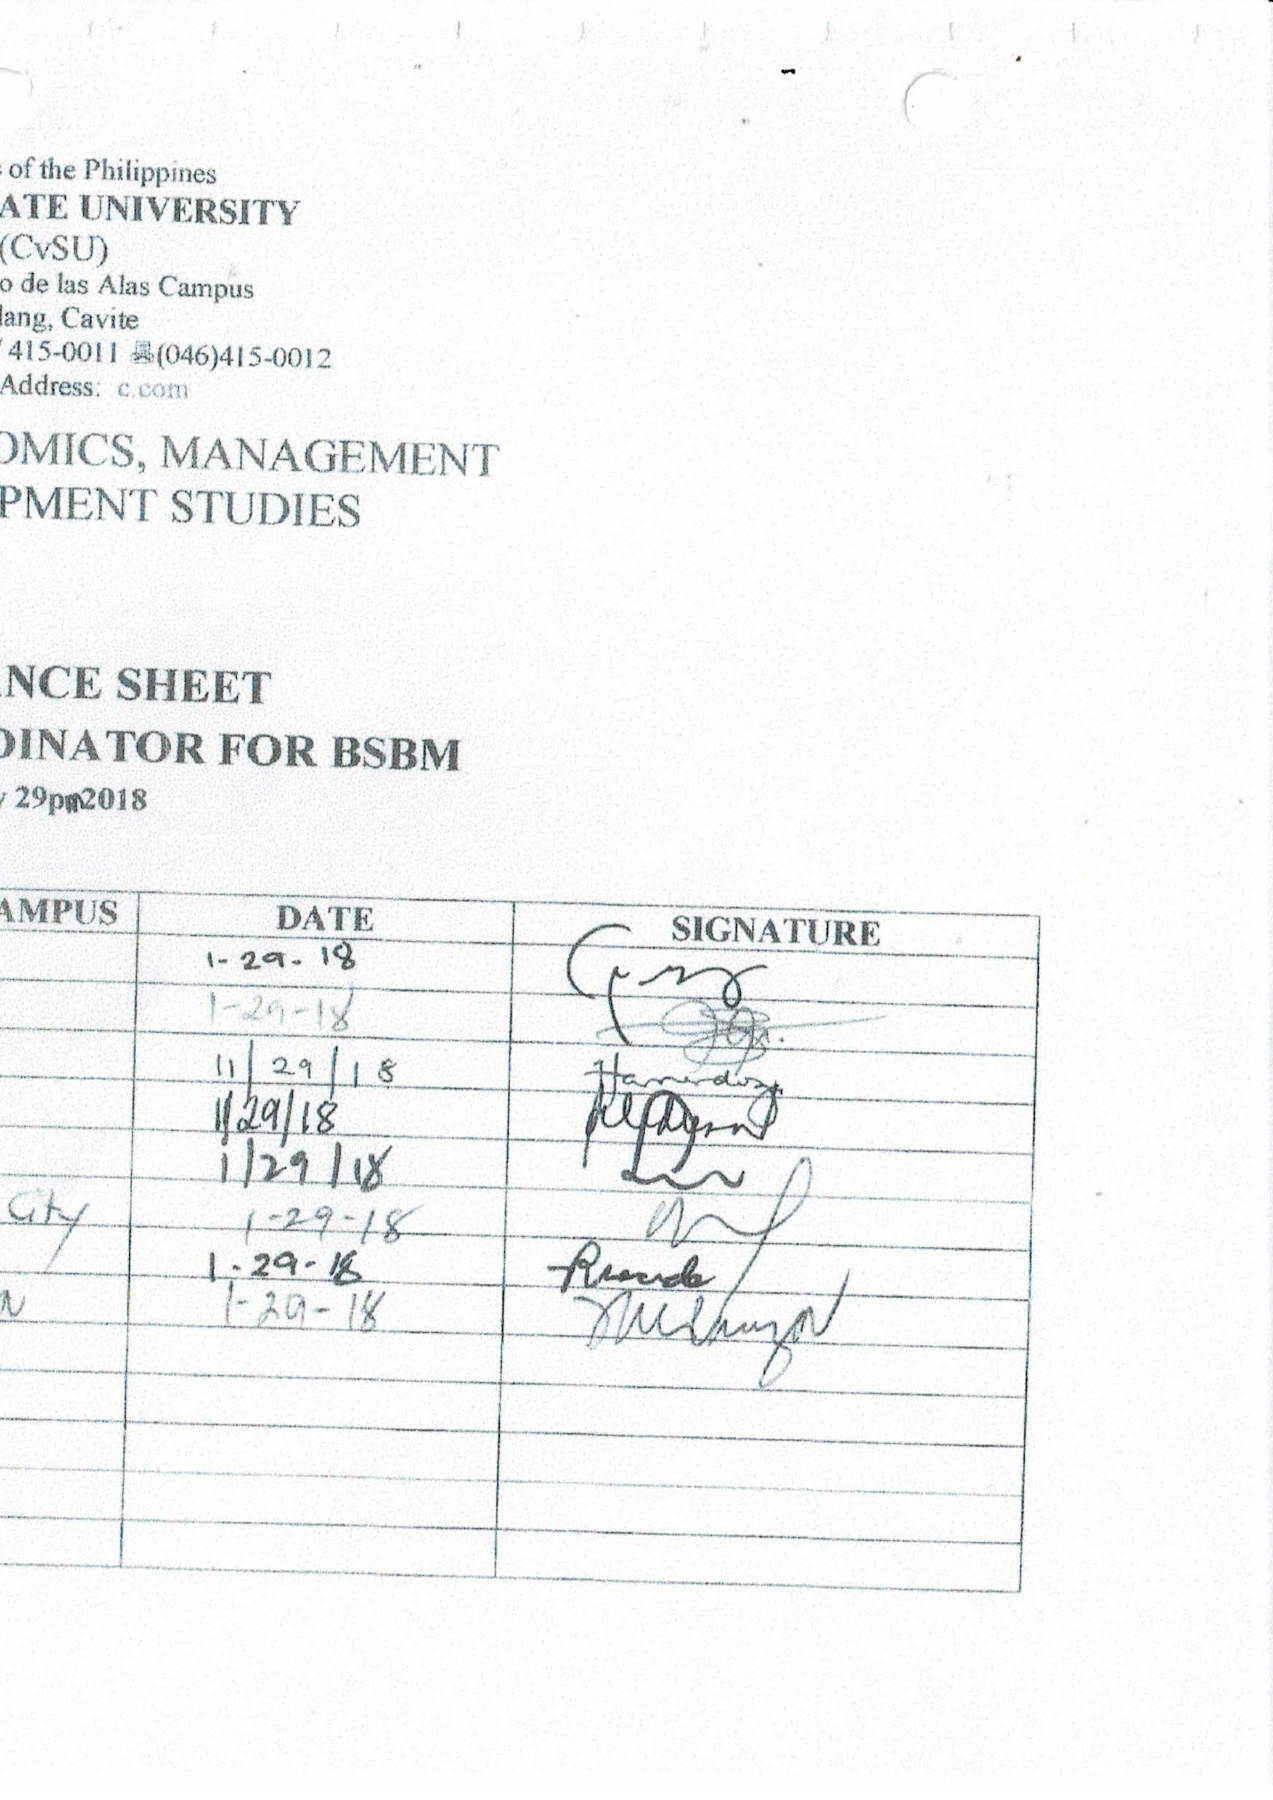 of the Philippines
ATE UNIVERSITY
(CvSU)
o de las Alas Campus
lang, Cavite
415-0011 (046)415-0012
Address: c.com
OMICS, MANAGEMENT
PMENT STUDIES
NCE SHEET
DINATOR FOR BSBM
29pm2018
AMPUS DATE SIGNATURE
1-29-18
1-29-18
11/29/18
1/29/18
1/29/18
City 1-29-18
1-29-18
N 1-29-18